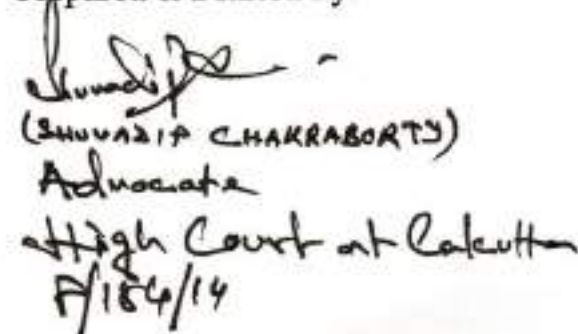 Shuvadip
(SHUVADIP CHAKRABORTY)
Advocate
High Court at Calcutta
F/184/14